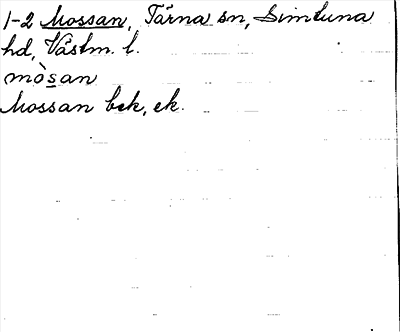 1-2 Mossan, Tärna sn, Simtuna
hd, Västm. l.
mòsan
Mossan bek, ek.